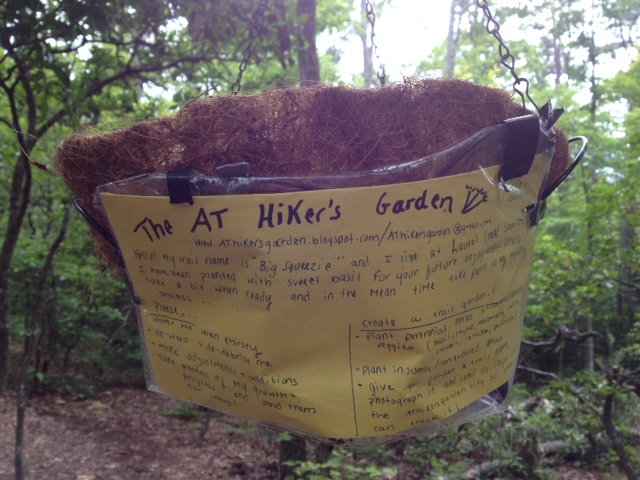 The AT Hiker's Garden
www.AThikersgarden.blogspot.com/AThikersgarden@gmail.com
Hello! My trail name is "Big Squeezie" and I live at Laurel Creek
I have been planted with sweet basil for your future enjoyment. Please
take a bit when ready and in the mean time take part in my
process...
Please...
Water me when thirsty
de-weed + de-debris me
Make adjustments + additions
Take photos of my growth +
and send them
create a trail garden...
- plant perennial herbs +
veggies
- plant in sunny/
- give garden a trail name,
photograph it and send to
the AThikersgarden site
can track it